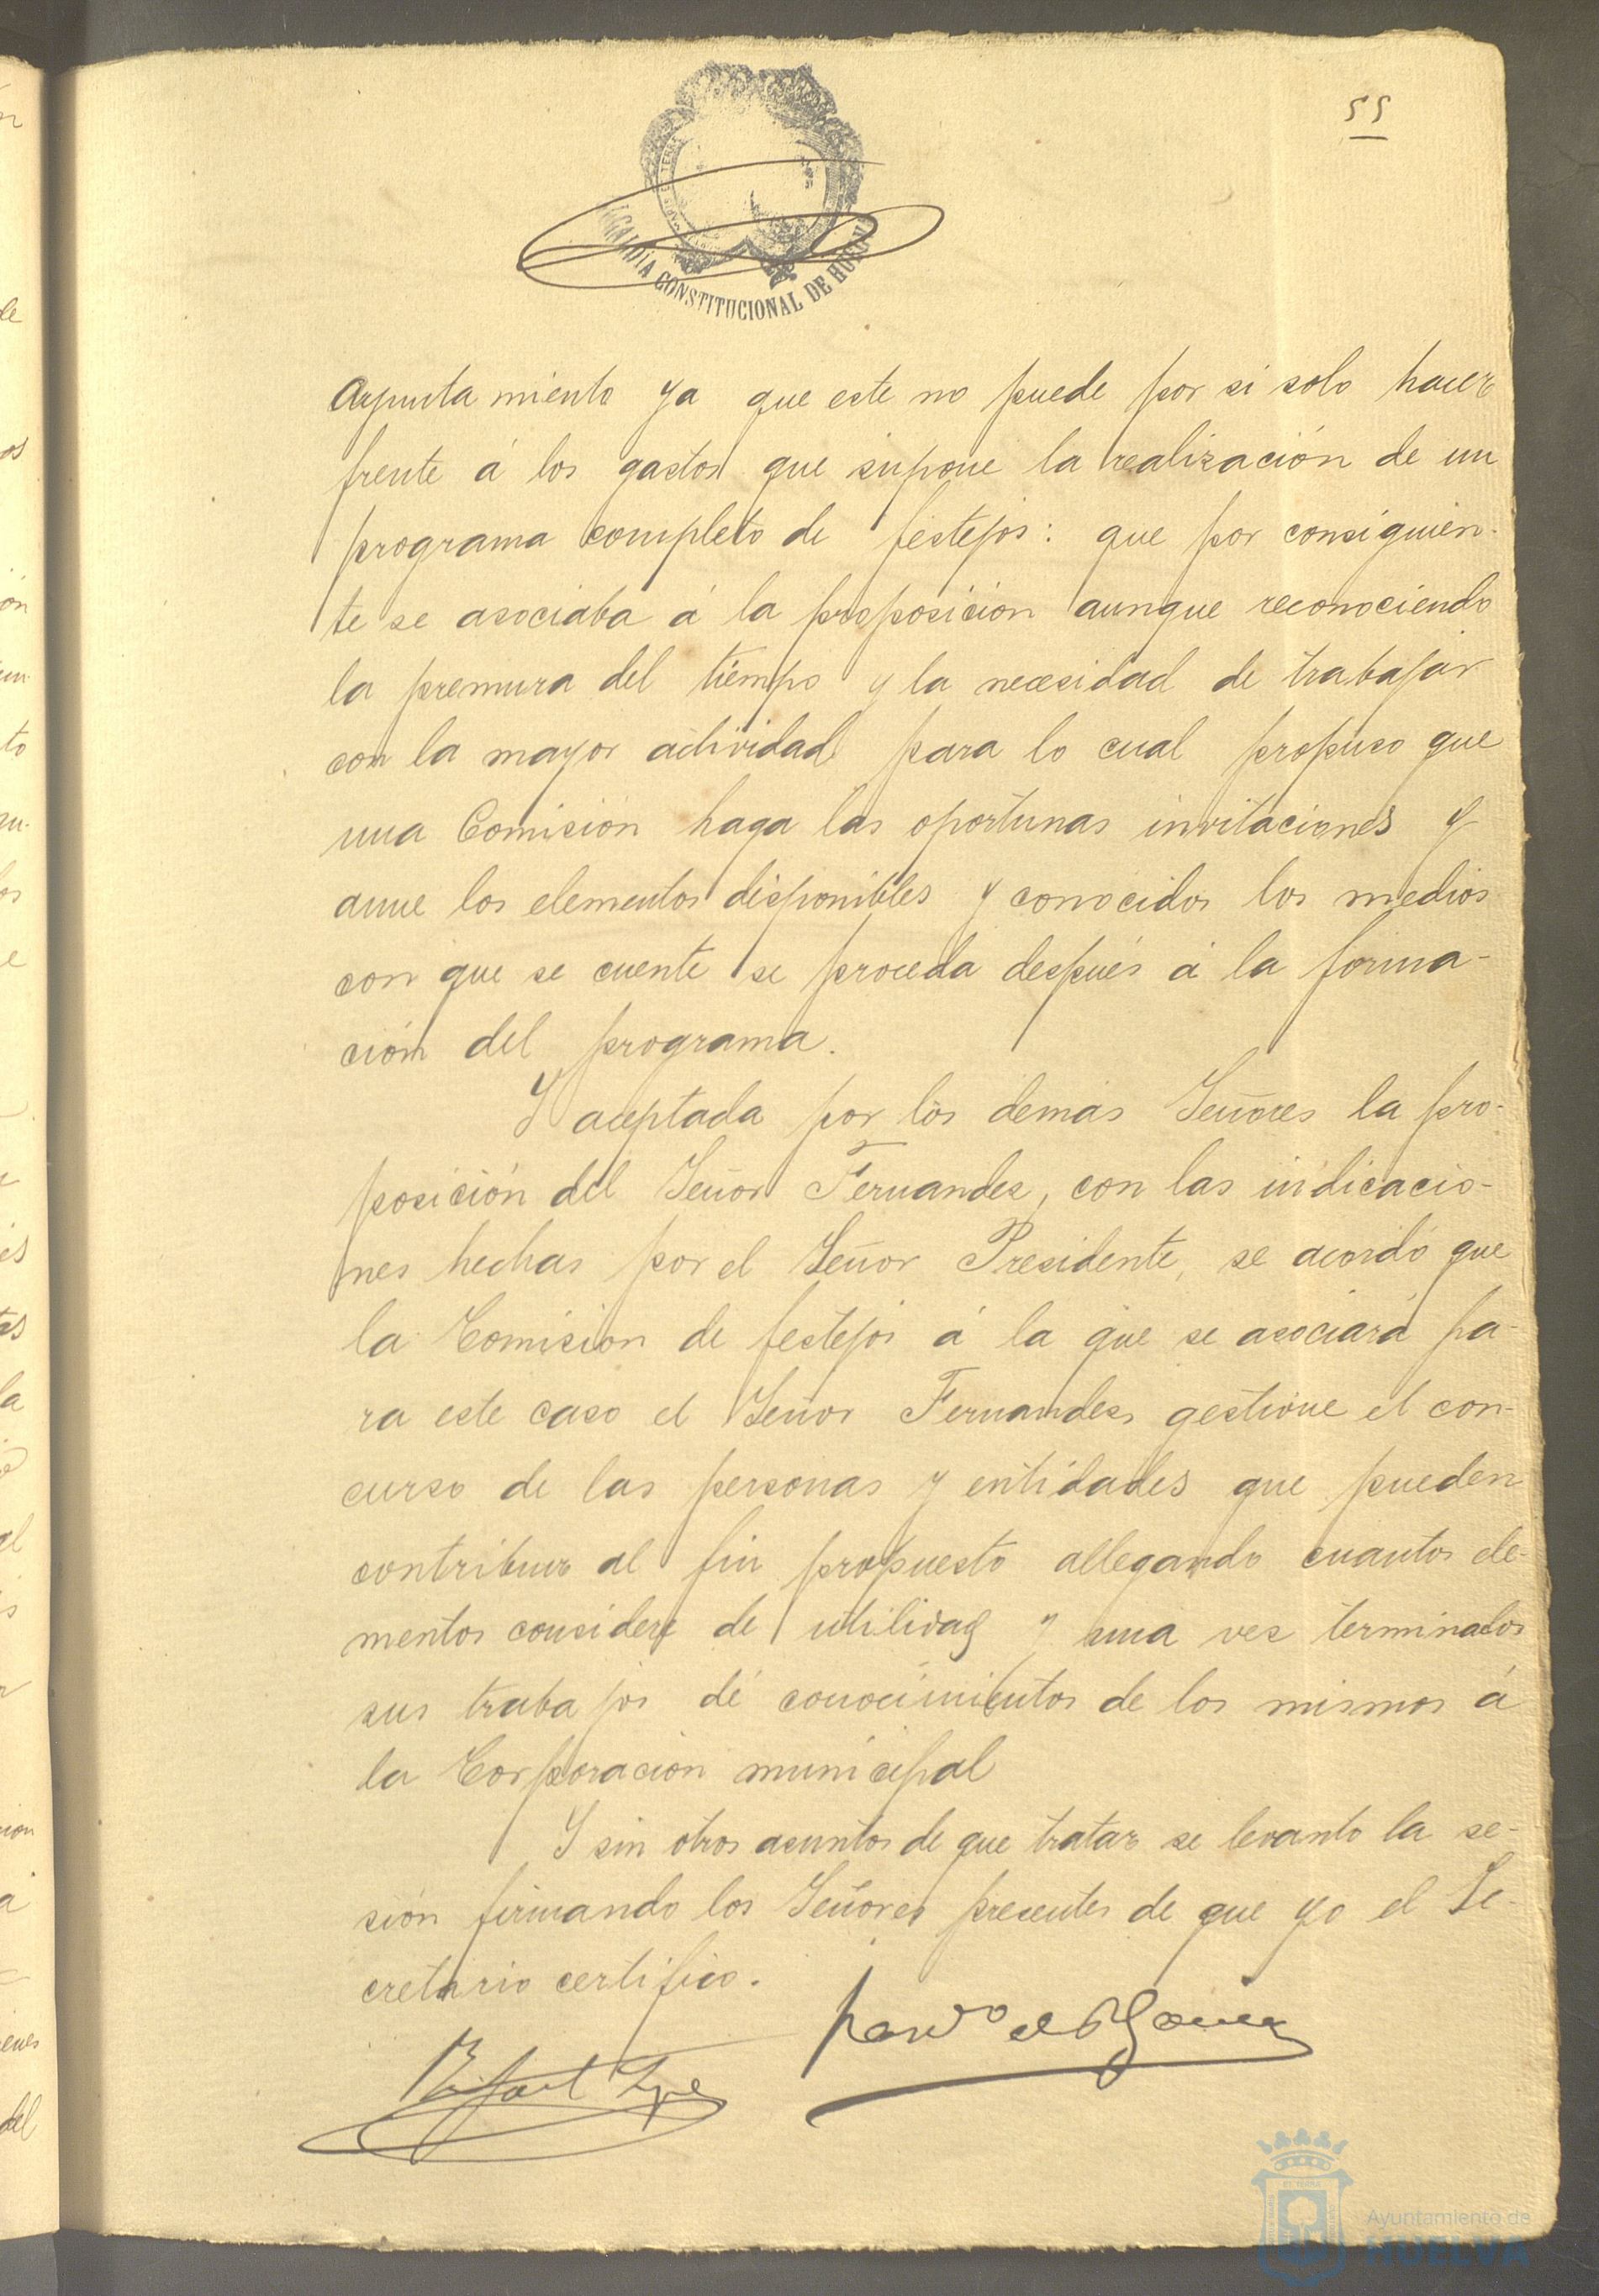 55
ALCALDÍA CONSTITUCIONAL DE HUELVA
Ayunta miento ya que este no puede por si solo hacer
frente á los gastos que supone la realización de un
programa completo de festejos: que por consiguien-
te se asociaba á la proposición aunque reconociendo
la premura del tiempo y la necesidad de trabajar
con la mayor actividad para lo cual propuso que
una Comisión haga las oportunas invitaciones y
aune los elementos disponibles y conocidos los medios
con que se cuente se proceda después á la forma-
ción del programa.
Y aceptada por los demás Señores la pro-
posición del Señor Fernandez, con las indicacio-
nes hechas por el Señor Presidente, se acordó que
la Comisión de festejos á la que se asociará pa-
ra este caso el Señor Fernandez gestione el con-
curso de las personas y entidades que pueden
contribuir al fin propuesto allegando cuantos ele-
mentos considere de utilidad y una vez terminados
sus trabajos dé conocimientos de los mismos á
la Corporación municipal
Y sin otros asuntos de que tratar se levanto la se-
sión firmando los Señores presentes de que yo el Se-
cretario certifico.
Ayuntamiento de
HUELVA